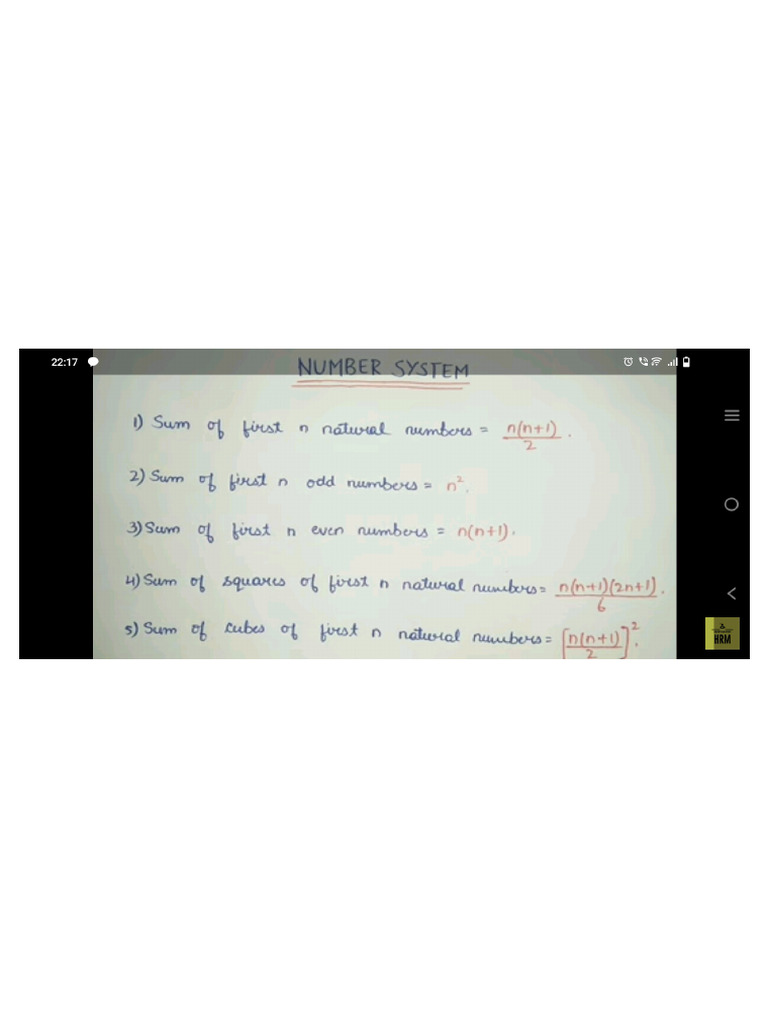 22:17
NUMBER SYSTEM
1) Sum of first n natural numbers = n(n+1)/2 .
2) Sum of first n odd numbers = n².
3) Sum of first n even numbers = n(n+1).
4) Sum of squares of first n natural numbers = n(n+1)(2n+1)/6 .
5) Sum of cubes of first n natural numbers = [n(n+1)/2]².
HRM